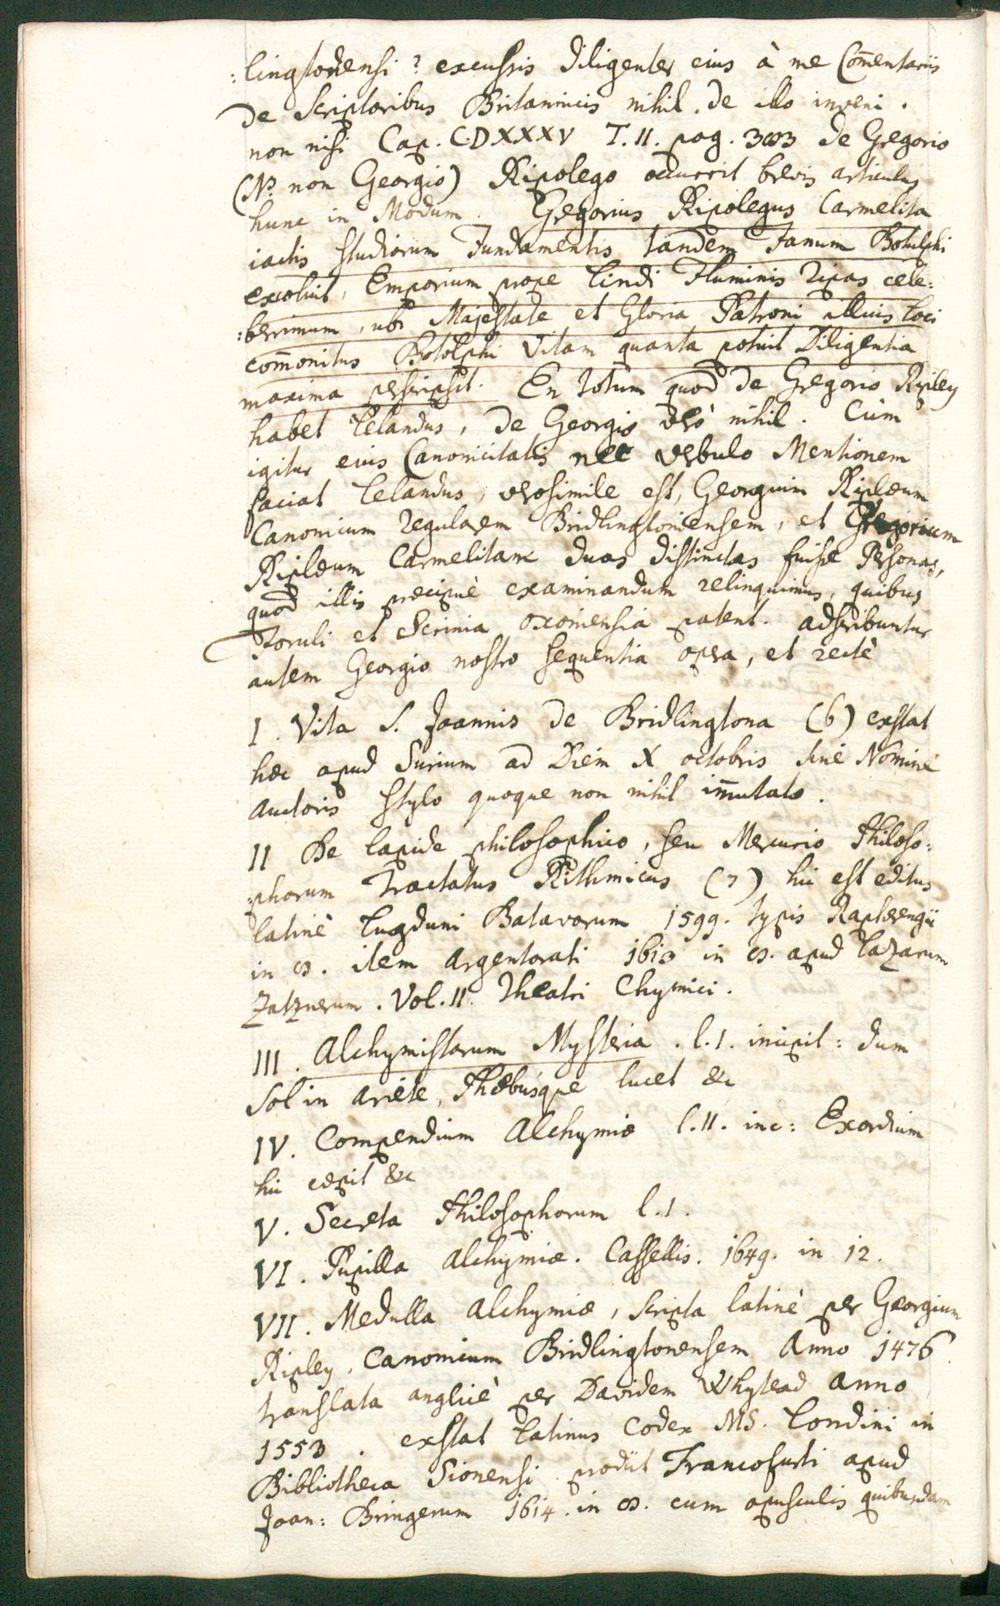 :lingtonensi? excussis diligenter eius à me Com̄entariis
De Scriptoribus Britannicis nihil de illo inveni.
non nisi Cap. CDXXXV T. II. pag. 383 de Gregorio
(NB non Georgio) Ripolego occurrit brevis articulus
hunc in Modum. Gregorius Ripolegus Carmelita
iactis studiorum Fundamentis tandem Fanum Botolphi
excoluit, Emporium prope Lindi Fluminis Ripas cele:
:berrimum, ubi Majestate et Gloria Patroni illius loci
com̄onitus Botolphi Vitam quanta potuit Diligentia
maxima perscripsit. En totum quod de Gregorio Ripley
habet Lelandus, De Georgio verò nihil. Cùm
igitur eius Canonicitatis nec verbulo Mentionem
faciat Lelandus, verosimile est, Georgium Riplæum
Canonicum regularem Bridlingtoniensem, et Gregorium
Riplæum Carmelitam duas distinctas fuisse Personas,
quod illis præcipuè examinandum relinquimus, quibus
Foruli et Scrinia oxoniensia patent. adscribuntur
autem Georgio nostro sequentia opera, et rectè
I. Vita S. Joannis de Bridlingtona (6) exstat
hæc apud Surium ad Diem X octobris sine Nomine
Auctoris stylo quoque non nihil im̄utato.
II De Lapide philosophico, seu Mercurio Philoso:
:phorum Tractatus Rithmicus (7) hic est editus
latinè Lugduni Batavorum 1599. typis Raphlengii
in 8. item Argentorati 1613 in 8. apud Lazarum
Zatznerum. Vol. II. Theatri Chymici.
III. Alchymistarum Mysteria. l. 1. incipit: dum
Sol in Ariete, Phœbusque lucet &c
IV. Compendium Alchymiæ l. II. inc: Exordium
hic cepit &c
V. Secreta Philosophorum l. 1.
VI. Pupilla Alchymiæ. Cassellis. 1649. in 12.
VII. Medulla Alchymiæ, scripta latinè per Georgium
Ripley, Canonicum Bridlingtonensem Anno 1476
translata anglicè per Davidem Whytead anno
1553. exstat Latinus Codex MS. Londini in
Bibliotheca Sionensi. prodiit Francofurti apud
Joan: Bringerum 1614. in 8. cum opusculis quibusdam